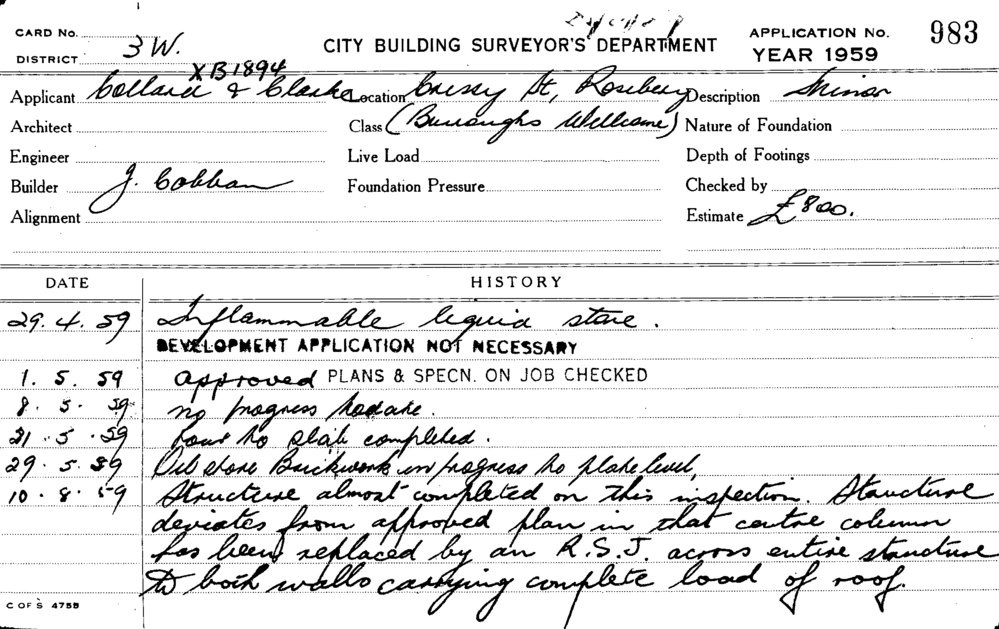 CARD No.
DISTRICT 3 W.
CITY BUILDING SURVEYOR'S DEPARTMENT
APPLICATION No. 983
YEAR 1959
XB1894
Applicant Collard & Clarke Location Cressy St, Rosebery Description Minor
Architect Class (Burroughs Wellcome) Nature of Foundation
Engineer Live Load Depth of Footings
Builder J. Cobban Foundation Pressure Checked by
Alignment Estimate £800.
DATE HISTORY
29.4.59 Inflammable liquid store.
DEVELOPMENT APPLICATION NOT NECESSARY
1.5.59 approved PLANS & SPECN. ON JOB CHECKED
8.5.59 no progress to date.
21.5.59 to slab completed.
29.5.59 Oil store Brickwork in progress to plate level,
10.8.59 Structure almost completed on this inspection. Structure
deviates from approved plan in that centre column
has been replaced by an R.S.J. across entire structure
to both walls carrying complete load of roof.
C OF S 4755